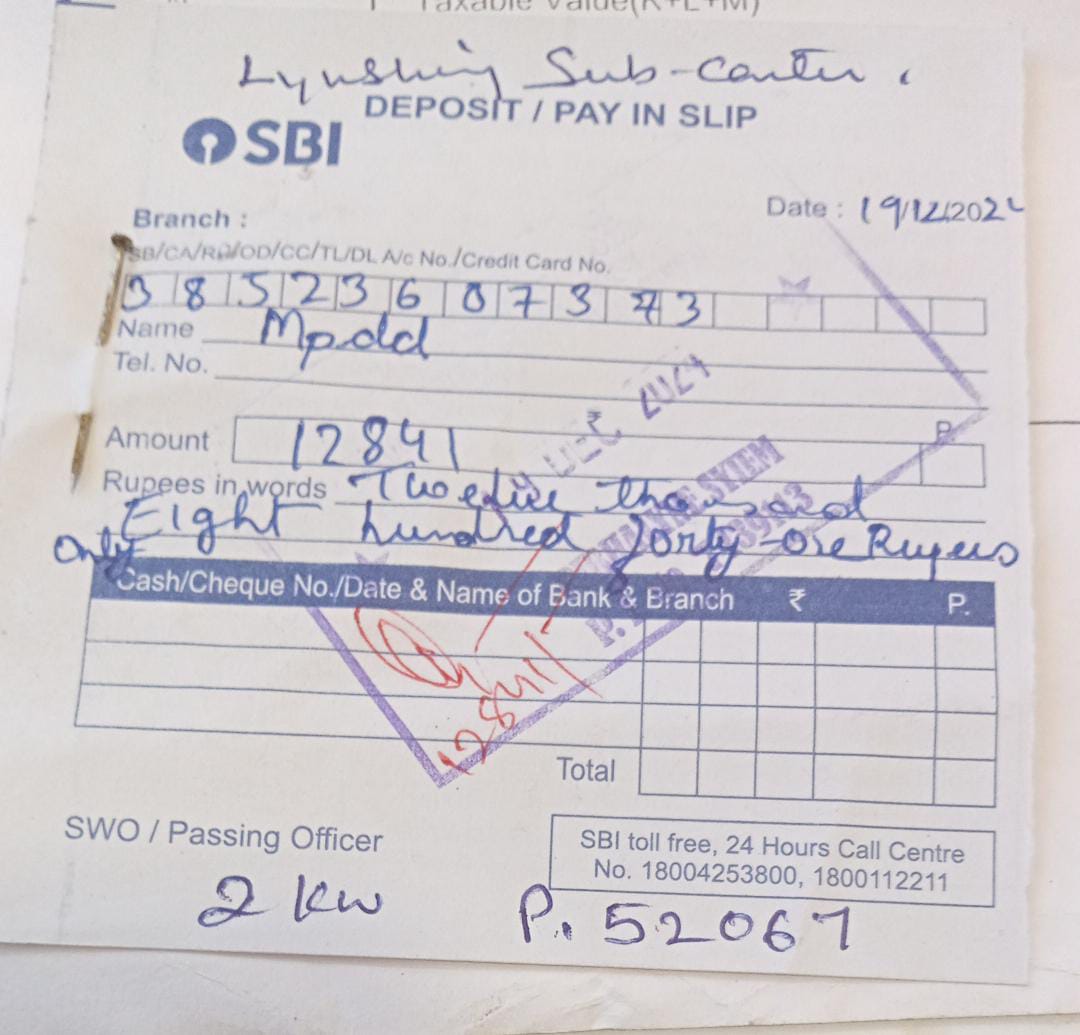 Taxable Value(K+L+M)
Lynshing Sub-Center.
DEPOSIT / PAY IN SLIP
SBI
Date : 19/12/2024
Branch :
SB/CA/RD/OD/CC/TL/DL A/c No./Credit Card No.
3 8 5 2 3 6 0 7 3 7 3
Name Mpdd
Tel. No.
₹ P.
Amount 12841
Rupees in words Twelve thousand
Eight hundred forty-one Rupees
only
DEC 2024
Cash/Cheque No./Date & Name of Bank & Branch ₹ P.
12841/-
Total
SWO / Passing Officer
SBI toll free, 24 Hours Call Centre
No. 18004253800, 1800112211
2 KW P. 52067